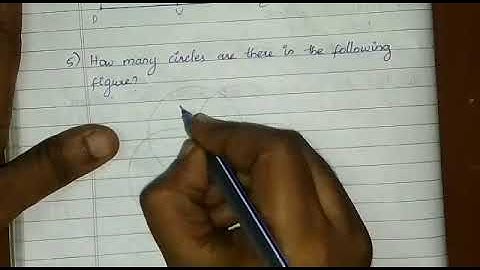 D
5) How many circles are there in the following
figure?